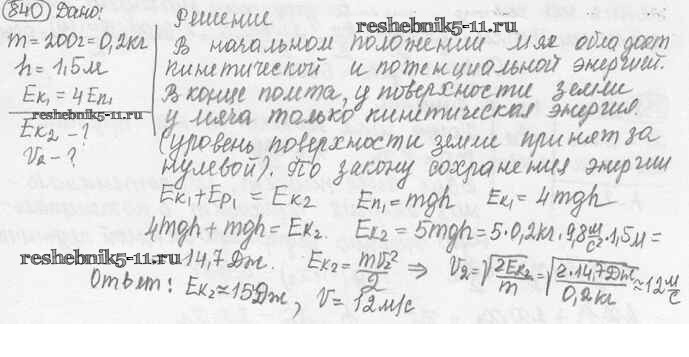 840 Дано:
m = 200г = 0,2кг
h = 1,5м
Eк1 = 4Eп1
reshebnik5-11.ru
Eк2 - ?
V2 - ?
Решение
reshebnik5-11.ru
В начальном положении мяч обладает
кинетической и потенциальной энергией.
В конце полета, у поверхности земли
у мяча только кинетическая энергия
(уровень поверхности земли принят за
нулевой). По закону сохранения энергии
Eк1 + Ep1 = Eк2 Eп1 = mgh Eк1 = 4mgh
4mgh + mgh = Eк2. Eк2 = 5mgh = 5·0,2кг·9,8м/с²·1,5м =
reshebnik5-11.ru
14,7Дж. Eк2 = mV2²/2 ⇒ V2 = √(2Eк2/m) = √(2·14,7Дж/0,2кг) ≈ 12м/с
Ответ: Eк2 ≈ 15Дж, V = 12м/с